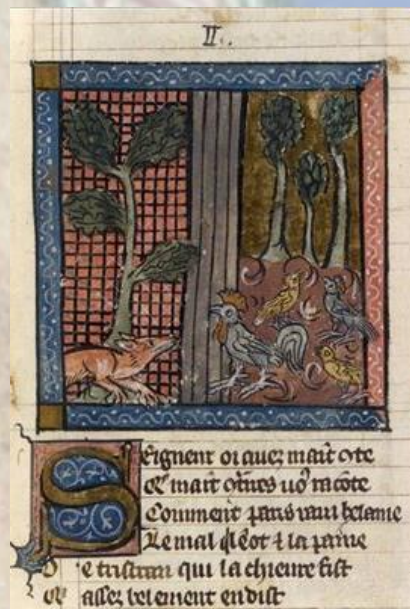 II.
Seigneur oi auez maīt 9te
Q' maīt 9tres uo9 racōte
Comment paris raui helaine
Le mal q'l ēot & la paine
De tristran qui la chieure fist
Q' assez belement en dist